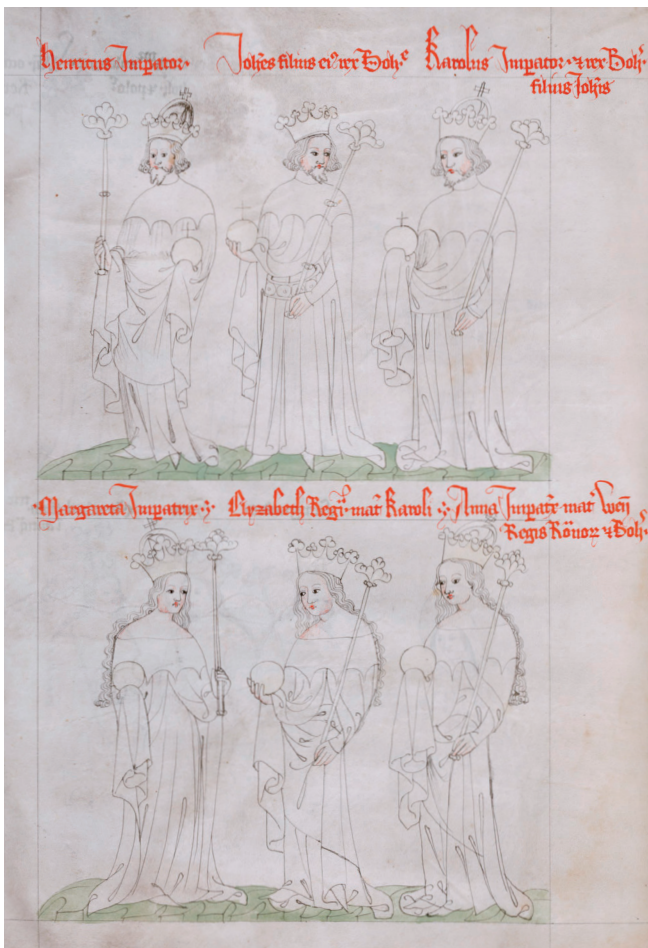 Henricus Imperator·
Joh̅es filius ei⁹ rex Boh̅e
Karolus Imperator· ⁊ rex Boh̅·
filius Joh̅is
Margareta Imperatrix·:·
Elyzabeth Regi̅· mat̅ Karoli ·:·
Anna Imperat̅x mat̅ Wen̅
Regis Romor̅ ⁊ Boh̅·